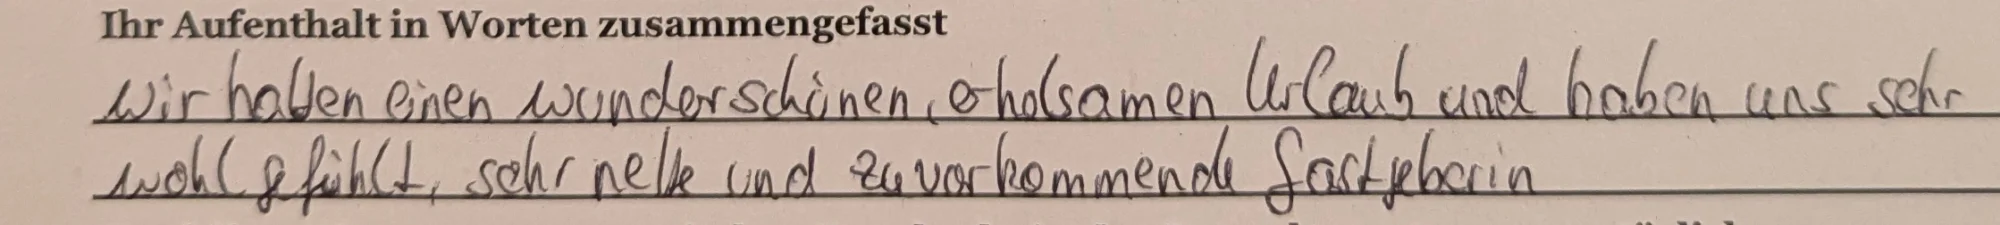 Ihr Aufenthalt in Worten zusammengefasst
Wir haben einen wunderschönen, erholsamen Urlaub und haben uns sehr
wohl gefühlt, sehr nette und zuvorkommende Gastgeberin